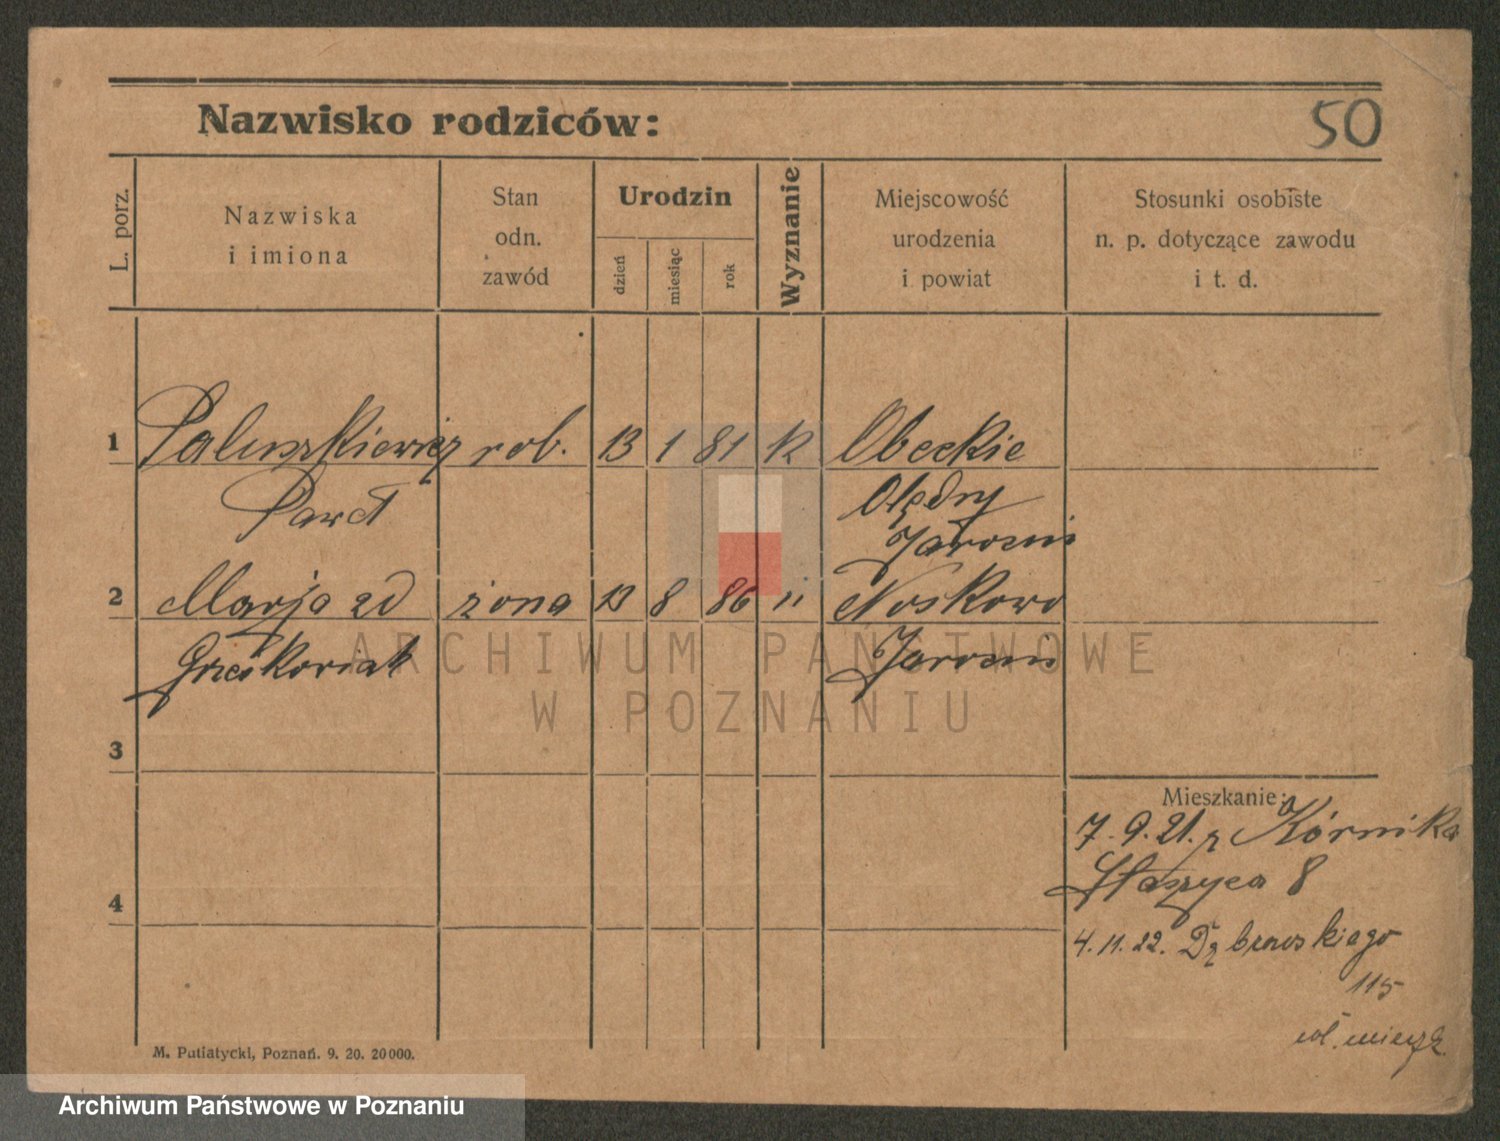 Nazwisko rodziców:
50
L. porz.
Nazwiska
i imiona
Stan
odn.
zawód
Urodzin
dzień
miesiąc
rok
Wyznanie
Miejscowość
urodzenia
i powiat
Stosunki osobiste
n. p. dotyczące zawodu
i t. d.
1 Paluszkiewicz rob. 13 1 81 k
Paweł Olędry
Jarocin
2 Marja zd żona 13 8 86 " Noskowo
Grześkowiak Jarocin
3
Mieszkanie:
7.9.21. z Kórnika
Staszyca 8
4
4.11.22. Dąbrowskiego
115
M. Putiatycki, Poznań. 9. 20. 20000.
ARCHIWUM PAŃSTWOWE
W POZNANIU
Archiwum Państwowe w Poznaniu